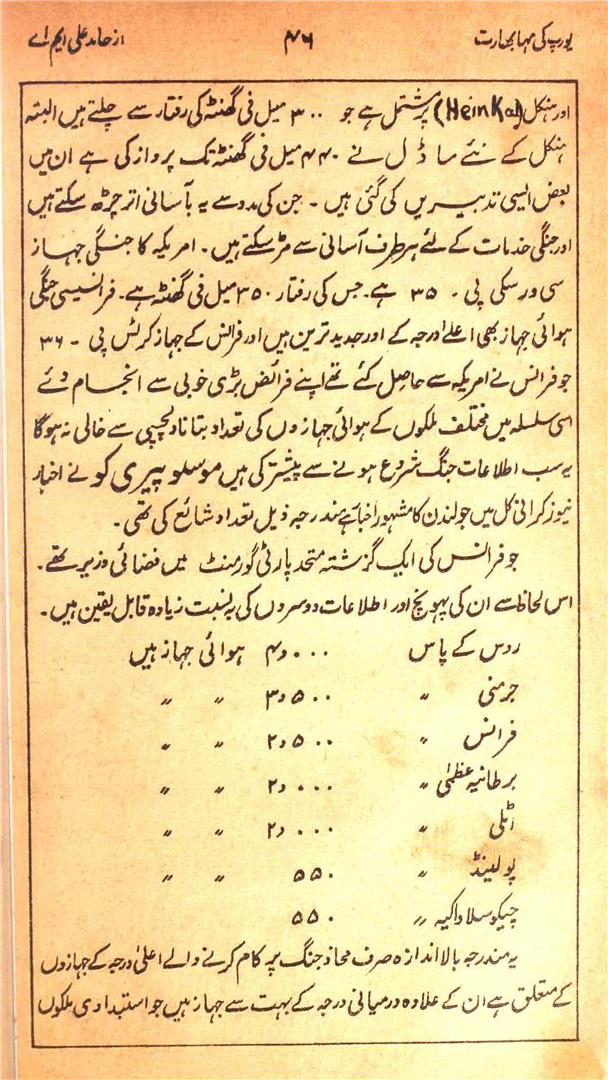 یورپ کی مہا بھارت ۴۶ از حامد علی ایم اے
اور ہنکل (HeinKal) پر مشتمل ہے جو ۳۰۰ میل فی گھنٹہ کی رفتار سے چلتے ہیں البتہ
ہنکل کے نئے ماڈل نے ۴۴۰ میل فی گھنٹہ تک پرواز کی ہے ان میں
بعض ایسی تدبیریں کی گئی ہیں ۔ جن کی مدد سے یہ بآسانی اتر چڑھ سکتے ہیں
اور جنگی خدمات کے لئے ہر طرف آسانی سے مڑ سکتے ہیں ۔ امریکہ کا جنگی جہاز
سی ورسکی پی ۔ ۳۵ ہے ۔ جس کی رفتار ۳۵۰ میل فی گھنٹہ ہے ۔ فرانسیسی جنگی
ہوائی جہاز بھی اعلے درجہ کے اور جدید ترین ہیں اور فرانس کے جہاز کرٹس پی ۔ ۳۶
جو فرانس نے امریکہ سے حاصل کئے تھے اپنے فرائض بڑی خوبی سے انجام دئے
اسی سلسلہ میں مختلف ملکوں کے ہوائی جہازوں کی تعداد بتانا دلچسپی سے خالی نہ ہوگا
یہ سب اطلاعات جنگ شروع ہونے سے پیشتر کی ہیں موسلو پیری کو نے اخبار
نیوز کرانی کل میں جو لندن کا مشہور اخبار ہے مندرجہ ذیل تعداد شائع کی تھی ۔
جو فرانس کی ایک گزشتہ متحد پارٹی گورمنٹ میں فضائی وزیر تھے ۔
اس لحاظ سے ان کی پہونچ اور اطلاعات دوسروں کی بہ نسبت زیادہ قابل یقین ہیں ۔
روس کے پاس ۴٫۰۰۰ ہوائی جہاز ہیں
جرمنی 〃 ۳٫۵۰۰ 〃 〃
فرانس 〃 ۲٫۵۰۰ 〃 〃
برطانیہ عظمیٰ 〃 ۲٫۰۰۰ 〃 〃
اٹلی 〃 ۲٫۰۰۰ 〃 〃
پولینڈ 〃 ۵۵۰ 〃 〃
چیکوسلاواکیہ 〃 ۵۵۰
یہ مندرجہ بالا اندازہ صرف محاذ جنگ پر کام کرنے والے اعلیٰ درجہ کے جہازوں
کے متعلق ہے ان کے علاوہ درمیانی درجہ کے بہت سے جہاز ہیں جو استبدادی ملکوں